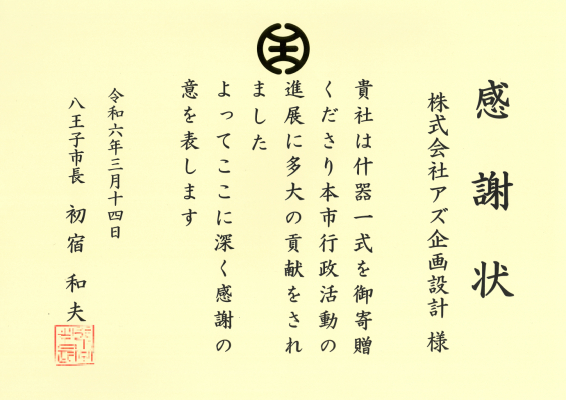 感謝状
株式会社アズ企画設計 様
貴社は什器一式を御寄贈
くださり本市行政活動の
進展に多大の貢献をされ
ました
よってここに深く感謝の
意を表します
令和六年三月十四日
八王子市長 初宿 和夫